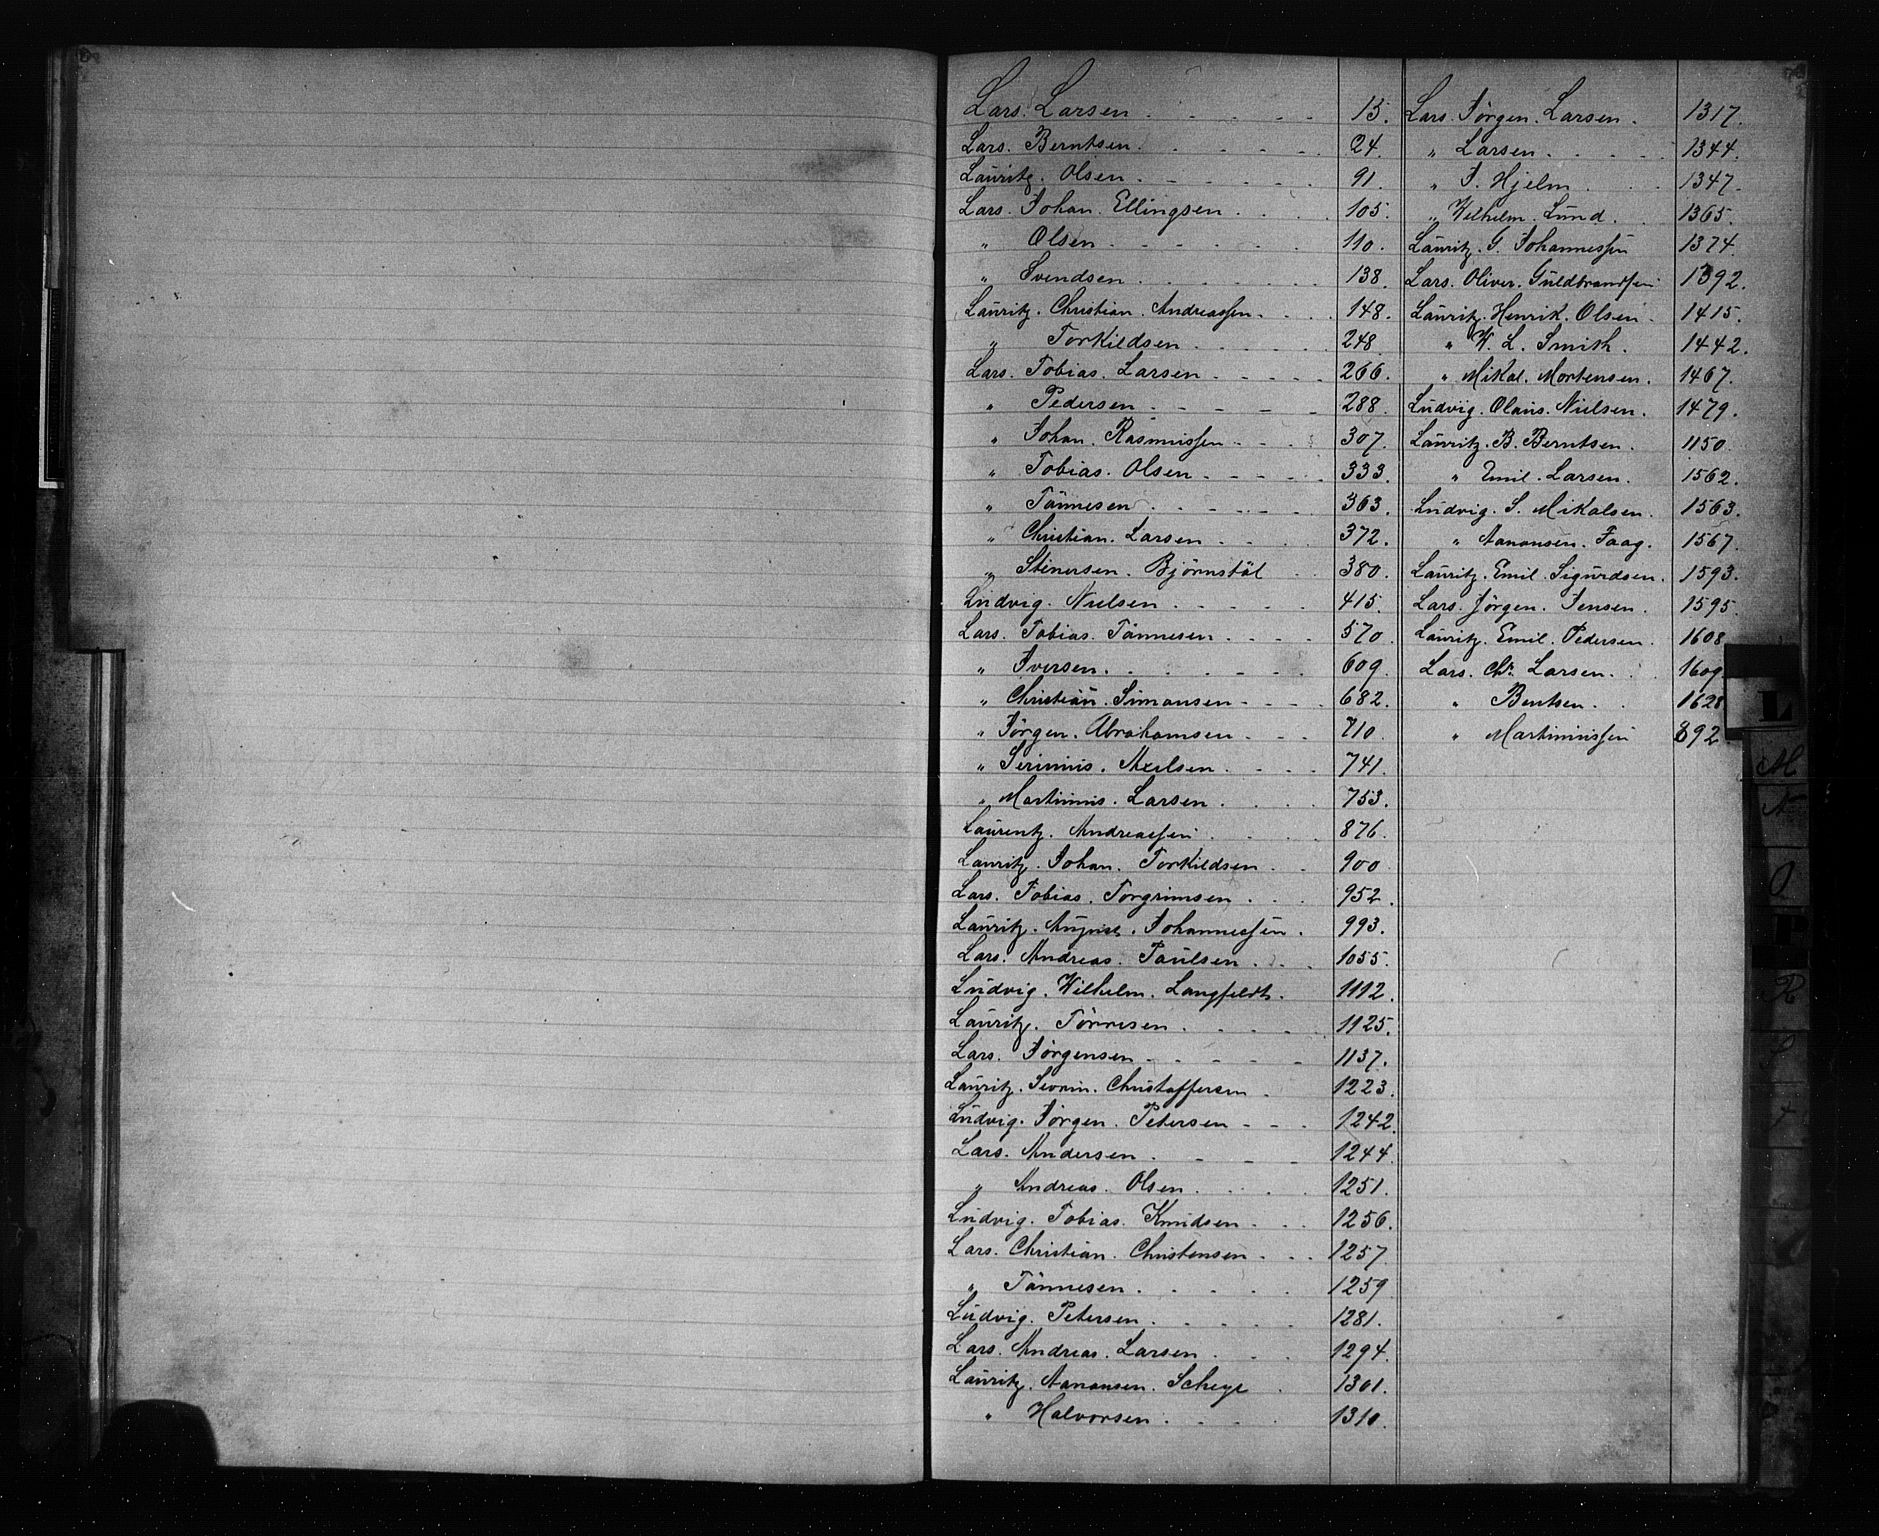 Lars. Larsen. 15.
Lars. Berntsen. 24.
Lauritz. Olsen. 91.
Lars. Johan. Ellingsen. 105.
" Olsen. 110.
" Svendsen. 138.
Lauritz. Christian. Andreassen. 148.
" Torkildsen. 248.
Lars. Tobias. Larsen. 266.
" Pedersen. 288.
" Johan. Rasmussen. 307.
" Tobias. Olsen. 333.
" Tönnesen. 363.
" Christian. Larsen. 372.
" Stenersen. Bjørnstøl 380.
Ludvig. Nielsen. 415.
Lars. Tobias. Tönnesen. 570.
" Iversen. 609.
" Christian. Simonsen. 682.
" Jørgen. Abrahamsen. 710.
" Axelsen. 741.
" Martinius. Larsen. 753.
Laurentz. Andreassen. 876.
Lauritz. Johan. Torkildsen. 900
Lars. Tobias. Torgrimsen. 952.
Lauritz. August. Johannessen. 993.
Lars. Andreas. Paulsen. 1055.
Ludvig. Wilhelm. Langfeldt. 1112.
Lauritz. Tørresen. 1125.
Lars. Jørgensen. 1137.
Lauritz. Severin. Christoffersen. 1223.
Ludvig. Jørgen. Petersen. 1242.
Lars. Andersen. 1244.
" Andreas. Olsen. 1251.
Ludvig. Tobias. Knudsen. 1256.
Lars. Christian. Christensen. 1257.
" Tönnesen. 1259
Ludvig. Petersen. 1281.
Lars. Andreas. Larsen. 1294.
Lauritz. Aanonsen. 1301.
" Halvorsen. 1310.
Lars. Jørgen. Larsen. 1317.
" Larsen. 1344.
" J. Hjelm. 1347.
" Wilhelm. Lund. 1365.
Lauritz. G. Johannessen 1374.
Lars. Oliver. Guldbrandsen 1392.
Lauritz. Henrik. Olsen. 1415.
" W. L. Smith. 1442.
" Mikal. Mortensen. 1467.
Ludvig. Olaus. Nielsen. 1479.
Lauritz. B. Berntsen. 1150.
" Emil. Larsen. 1562.
Ludvig. S. Mikalsen. 1563.
" Aanonsen. Faag. 1567.
Lauritz. Emil. Sigurdsen. 1593.
Lars. Jørgen. Jensen. 1595.
Lauritz. Emil. Pedersen. 1608
Lars. Chr. Larsen. 1609.
" Bentsen. 1628
" Martiniussen 892
L
M
N
O
R